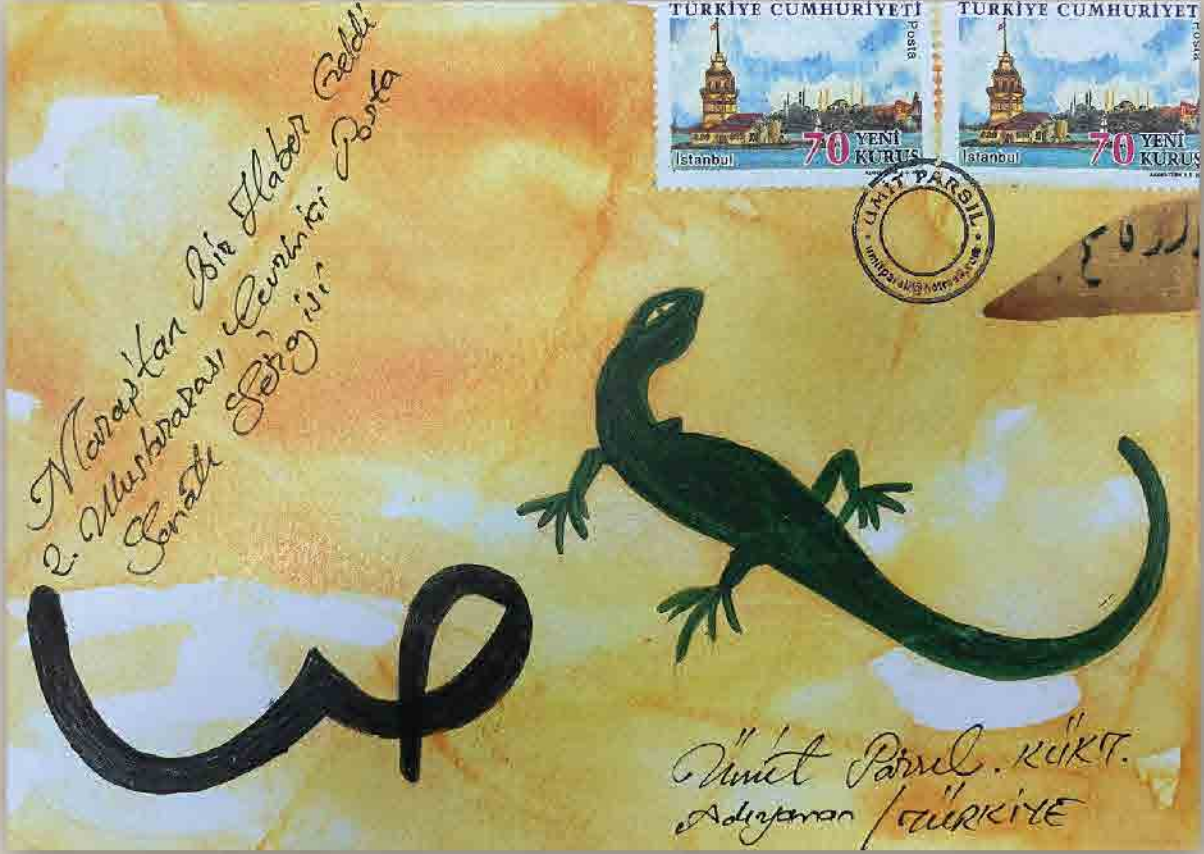 TÜRKİYE CUMHURİYETİ
Posta
İstanbul
70 YENİ
KURUŞ
TÜRKİYE CUMHURİYET
Posta
İstanbul
70 YENİ
KURUŞ
ÜMİT PARSIL
Maraştan Bir Haber Geldi
2. Uluslararası Çevrimiçi Posta
Sanatı Sergisi
Ümit Parsıl. KÜKT.
Adıyaman / TÜRKİYE